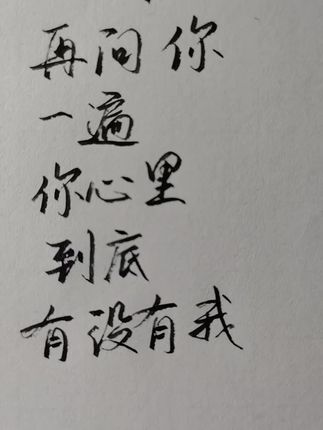 再问你
一遍
你心里
到底
有没有我